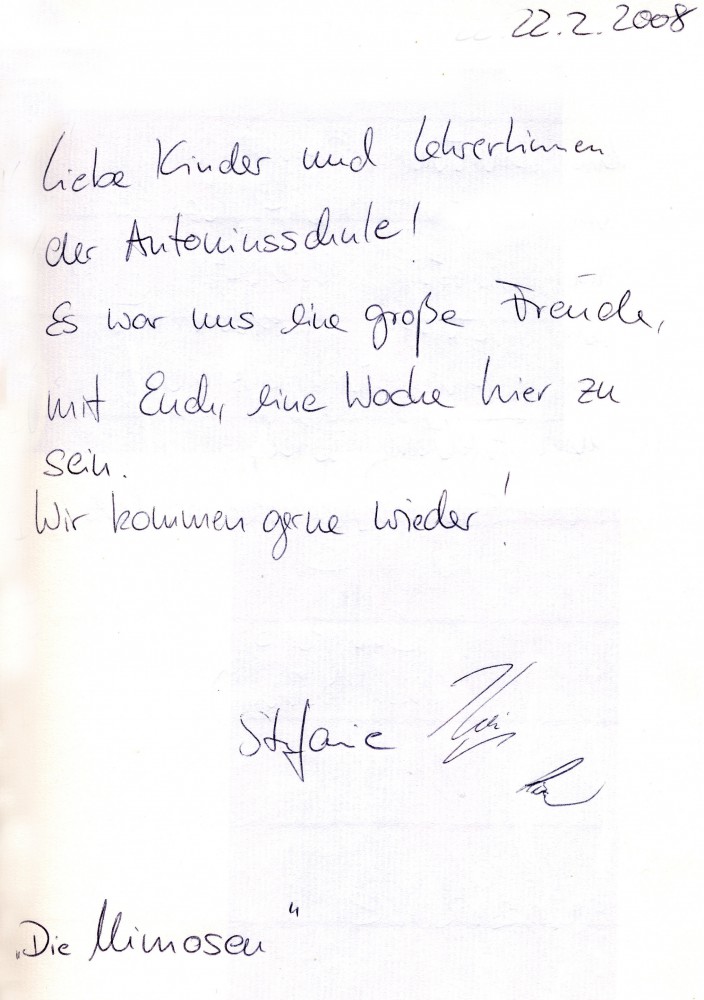 22.2.2008
Liebe Kinder und LehrerInnen
der Antoniusschule!
Es war uns eine große Freude,
mit Euch, eine Woche hier zu
sein.
Wir kommen gerne wieder!
Stefanie
„Die Mimosen"